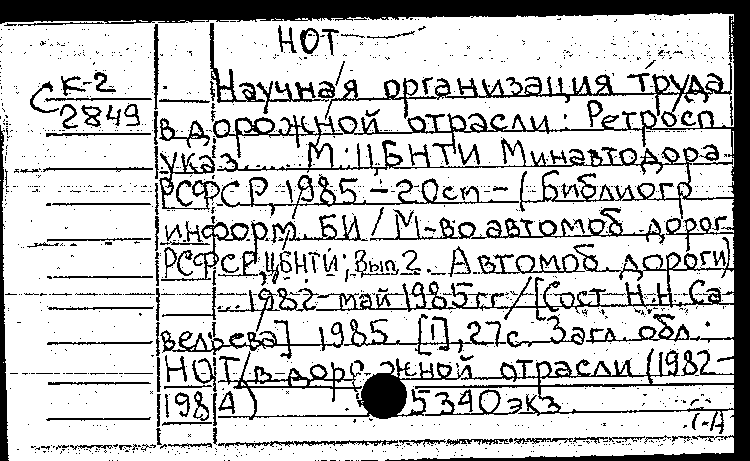 НОТ
К-2 Научная организация труда
С 2849 в дорожной отрасли: Ретросп.
указ.... М.: ЦБНТИ Минавтодора
РСФСР, 1985. - 20 см - (Библиогр.
информ. БИ / М-во автомоб. дорог
РСФСР, ЦБНТИ; Вып. 2. Автомоб. дороги)
... 1982 - май 1985 гг. / [Сост. Н.Н. Са-
вельева] 1985. [1], 27 с. Загл. обл.:
НОТ в дорожной отрасли (1982-
1984) 5340 экз.